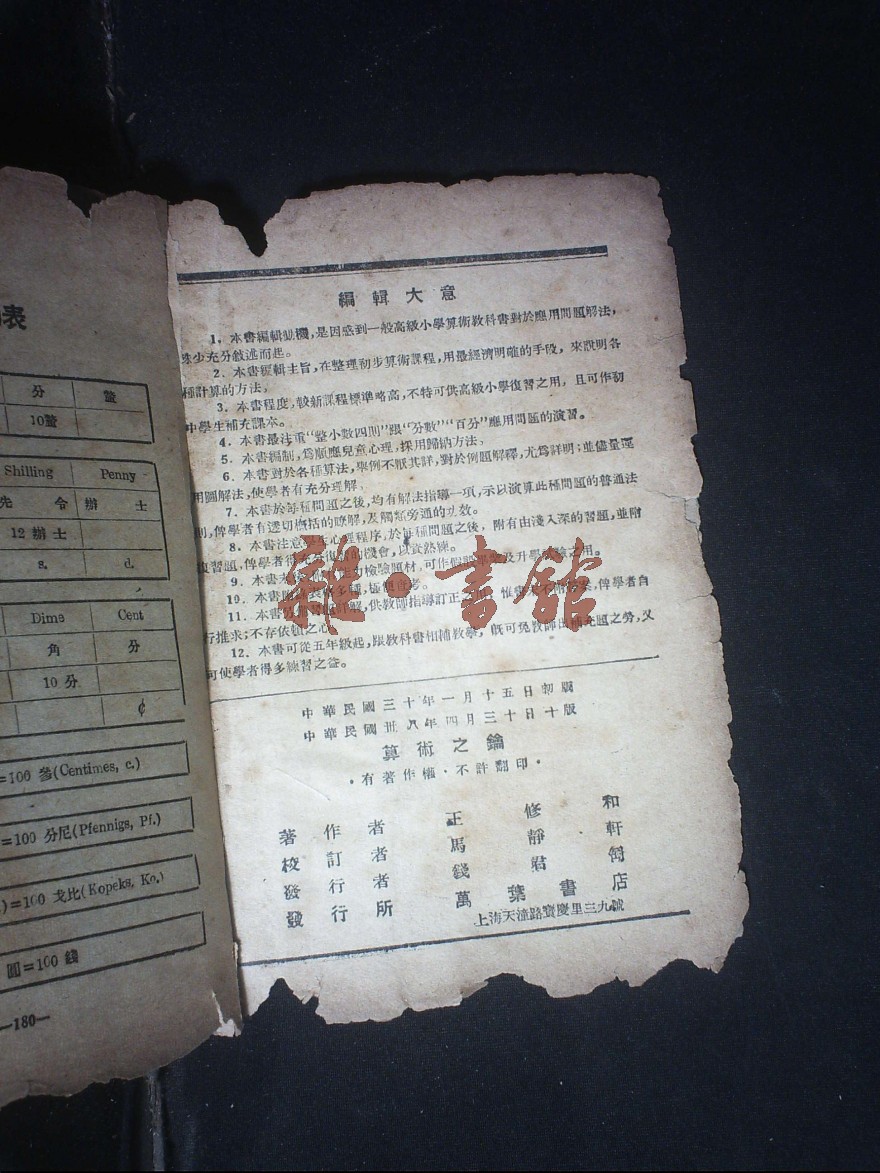 表
分 釐
10釐
Shilling Penny
先 令 辦 士
12 辦士
s. d.
Dime Cent
角 分
10 分
¢
=100 參(Centimes, c.)
=100 分尼(Pfennigs, Pf.)
)=100 戈比(Kopeks, Ko.)
圓=100 錢
—180—
編輯大意
1. 本書編輯動機,是因感到一般高級小學算術教科書對於應用問題解法,
殊少充分敘述而起。
2. 本書編輯主旨,在整理初步算術課程,用最經濟明確的手段,來說明各
種計算的方法,
3. 本書程度,較新課程標準略高,不特可供高級小學復習之用,且可作初
中學生補充課本。
4. 本書最注重“整小數四則”跟“分數”“百分”應用問題的演習。
5. 本書編制,爲順應兒童心理,採用歸納方法,
6. 本書對於各種算法,舉例不厭其詳,對於例題解釋,尤爲詳明;並儘量運
用圖解法,使學者有充分理解,
7. 本書於每種問題之後,均有解法指導一項,示以演算此種問題的普通法
則,俾學者有透切概括的瞭解,及觸類旁通的功效。
8. 本書注意學 心理程序,於每種問題之後,附有由淺入深的習題,並附
復習題,俾學者得 的機會,以資熟練。
9. 本書 檢驗題材,可作假 及升學 之用。
10. 本書
11. 本書 詳解,供教師指導訂正 惟書 俾學者自
行推求;不存依賴之心
12. 本書可從五年級起,跟教科書相補教學,既可免教師 補充題之勞,又
可使學者得多練習之益。
中華民國三十年一月十五日初版
中華民國卅八年四月三十日十版
算術之鑰
·有著作權·不許翻印·
著作者 王修和
校訂者 馬靜軒
發行者 錢君匋
發行所 萬葉書店
上海天潼路寶慶里三九號
雜·書館